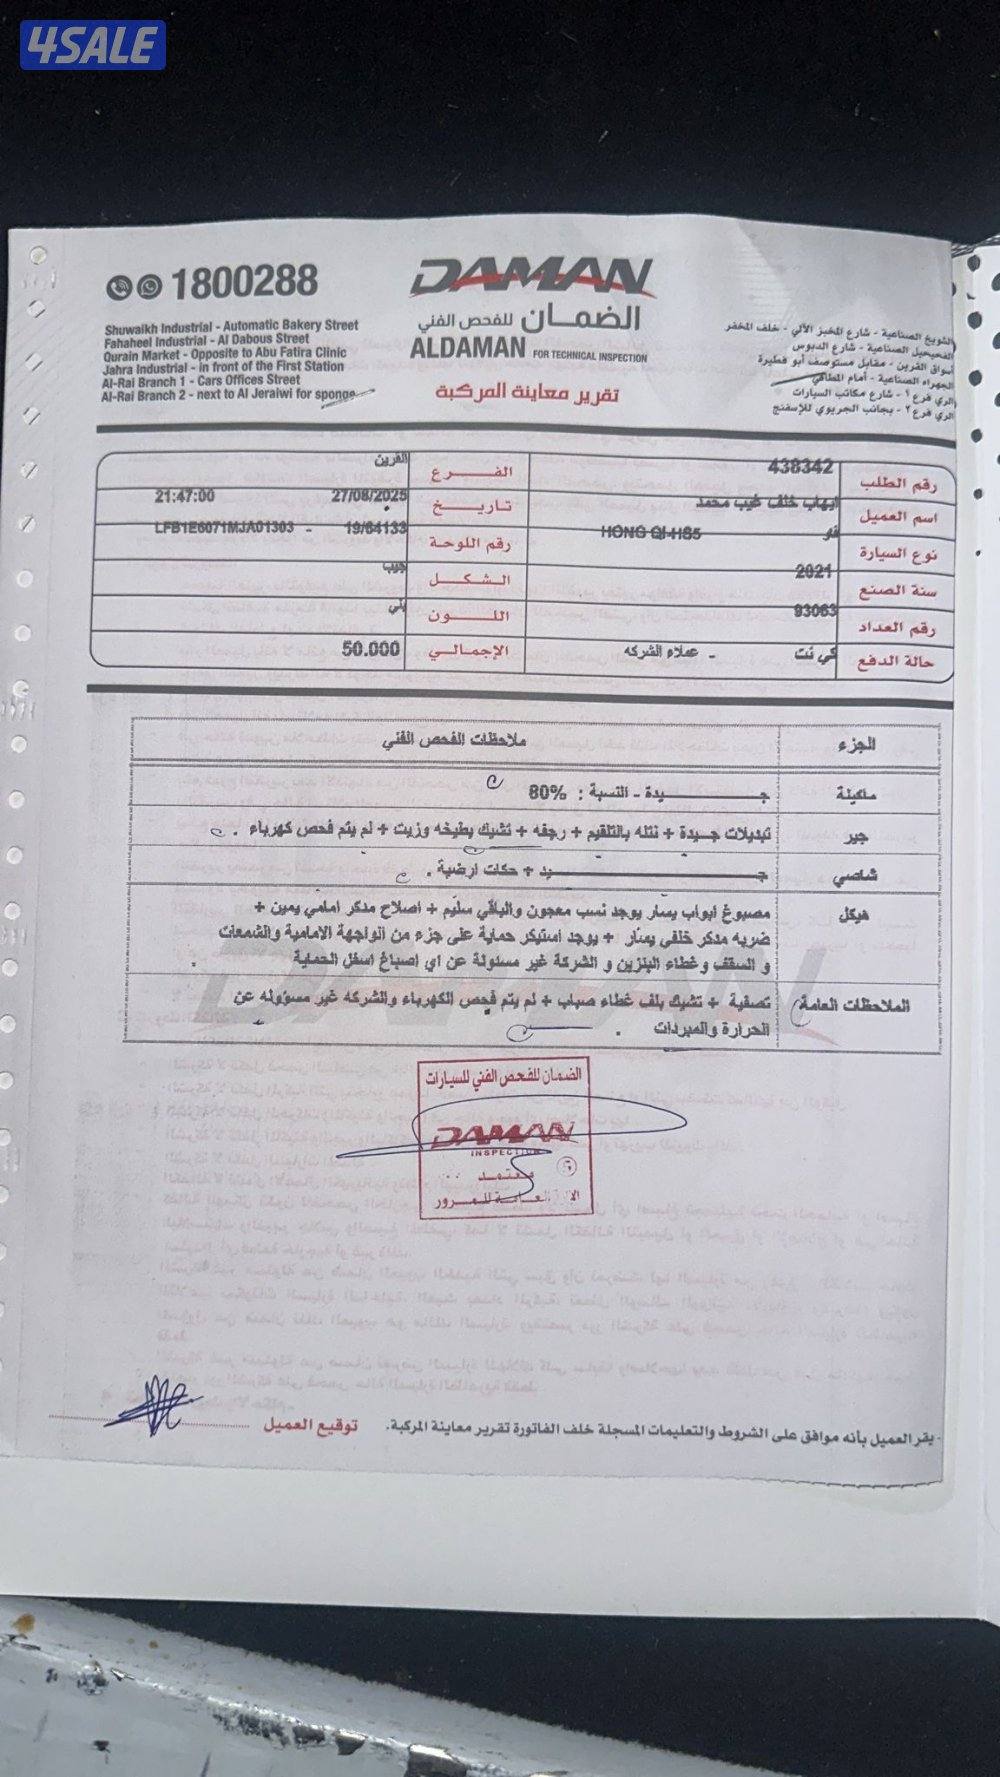 4SALE
1800288
Shuwaikh Industrial - Automatic Bakery Street
Fahaheel Industrial - Al Dabous Street
Qurain Market - Opposite to Abu Fatira Clinic
Jahra Industrial - in front of the First Station
Al-Rai Branch 1 - Cars Offices Street
Al-Rai Branch 2 - next to Al Jeraiwi for sponge
DAMAN
الضمـــان للفحص الفني
ALDAMAN FOR TECHNICAL INSPECTION
تقرير معاينة المركبة
الشويخ الصناعية - شارع المخبز الآلي - خلف المخفر
الفحيحيل الصناعية - شارع الدبوس
أسواق القرين - مقابل مستوصف أبو فطيرة
الجهراء الصناعية - أمام المطافي
الري فرع ١ - شارع مكاتب السيارات
الري فرع ٢ - بجانب الجريوي للإسفنج
رقم الطلب 438342 الفـــرع القرين
اسم العميل ايهاب خلف غيب محمد تاريـــخ 27/08/2025 21:47:00
نوع السيارة فو HONG QI-HS5 رقم اللوحة 19/64133 - LFB1E6071MJA01303
سنة الصنع 2021 الشكـــل جيب
رقم العداد 93063 اللـــون بني
حالة الدفع كي نت - عملاء الشركه الإجمـالـي 50.000
الجزء ملاحظات الفحص الفني
ماكينة جـــــيدة - النسبة : 80%
جير تبديلات جـيدة + نتله بالتلقيم + رجفه + تشيك بطيخه وزيت + لم يتم فحص كهرباء .
شاصي جـــــيد + حكات ارضية .
هيكل مصبوغ ابواب يسار يوجد نسب معجون والباقي سليم + اصلاح مدكر امامي يمين +
ضربه مدكر خلفي يسار + يوجد استيكر حماية على جزء من الواجهة الامامية والشمعات
و السقف وغطاء البنزين و الشركة غير مسئولة عن اي اصباغ اسفل الحماية .
الملاحظات العامة تصفية + تشيك بلف غطاء صباب + لم يتم فحص الكهرباء والشركه غير مسؤوله عن
الحرارة والمبردات .
الضمان للفحص الفني للسيارات
DAMAN
INSPECTION
معتمد
الإدارة العـامـة للمـرور
- يقر العميل بأنه موافق على الشروط والتعليمات المسجلة خلف الفاتورة تقرير معاينة المركبة. توقيع العميل